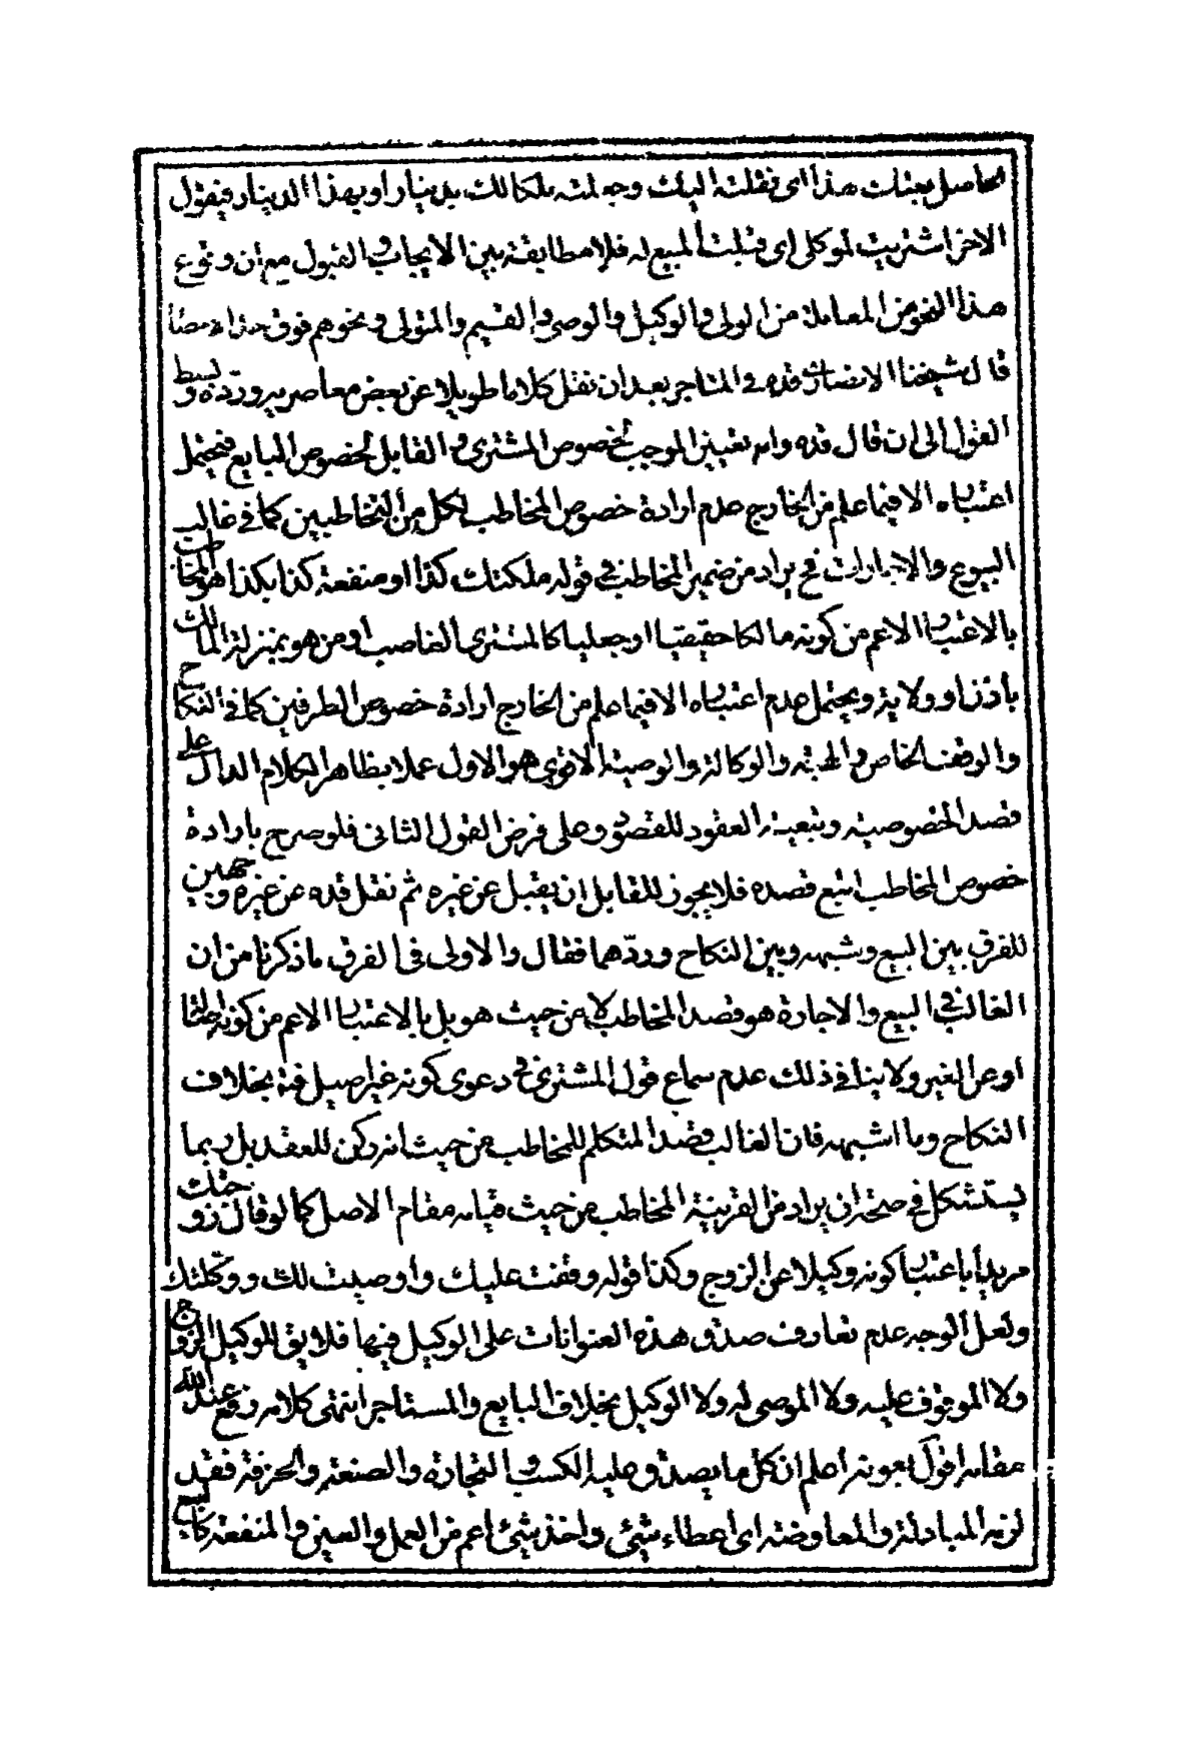 الحاصل بعتك هذا اى نقلته اليك وجعلته ملكا لك بدينار او بهذا الدينار فيقول
الاخر اشتريت لموكلى اى قبلت المبيع له فلا مطابقة بين الايجاب والقبول مع ان وقوع
هذا النحو من المعاملة من الولى والوكيل والوصى والقيم والمتولى ونحوهم فوق حد الاحصاء
قال شيخنا الانصارى قده فى المتاجر بعد ان نقل كلاما طويلا عن بعض معاصريه وردّه وبسط
القول الى ان قال قده واما تعيين الموجب لخصوص المشترى والقابل لخصوص البايع فيحتمل
اعتباره الا فيما علم من الخارج عدم ارادة خصوص المخاطب لكل من المتخاطبين كما فى غالب
البيوع والاجارات فح يراد من ضمير المخاطب فى قوله ملكتك كذا او منفعة كذا بكذا هو المخاطب
بالاعتبار الاعم من كونه مالكا حقيقيا او جعليا كالمشترى الغاصب او من هو بمنزلة المالك
باذن او ولاية ويحتمل عدم اعتباره الا فيما علم من الخارج ارادة خصوص الطرفين كما فى النكاح
والوقف الخاص والهبة والوكالة والوصية الاقوى هو الاول عملا بظاهر الكلام الدال على
قصد الخصوصية وتبعية العقود للقصود وعلى فرض القول الثانى فلو صرح بارادة
خصوص المخاطب اتبع قصده فلا يجوز للقابل ان يقبل عن غيره ثم نقل قده عن غيره وجهين
للفرق بين البيع وشبهه وبين النكاح وردّهما فقال والاولى فى الفرق ما ذكرنا من ان
الغالب فى البيع والاجارة هو قصد المخاطب لا من حيث هو بل بالاعتبار الاعم من كونه اصلا
او عن الغير ولا ينافى ذلك عدم سماع قول المشترى فى دعوى كونه غير اصيل فتة بخلاف
النكاح وما اشبهه فان الغالب قصد المتكلم للمخاطب من حيث انه ركن للعقد بل ربما
يستشكل فى صحة ان يراد من القرينة المخاطب من حيث قيامه مقام الاصل كما لو قال زوجتك
مريدا باعتبار كونه وكيلا عن الزوج وكذا قوله وقفت عليك واوصيت لك ووكلتك
ولعل الوجه عدم تعارف صدق هذه العنوانات على الوكيل فيها فلا يق للوكيل الزوج
ولا الموقوف عليه ولا الموصى له ولا الوكيل بخلاف البايع والمستاجر انتهى كلامه رفع عند الله
مقامه اقول بعونه اعلم ان كل ما يصدق عليه الكسب والتجارة والصنعة والحرفة فقد
لزمه المبادلة والمعاوضة اى اعطاء شيئ واخذ شيئ اعم من العمل والعين والمنفعة كالبيع